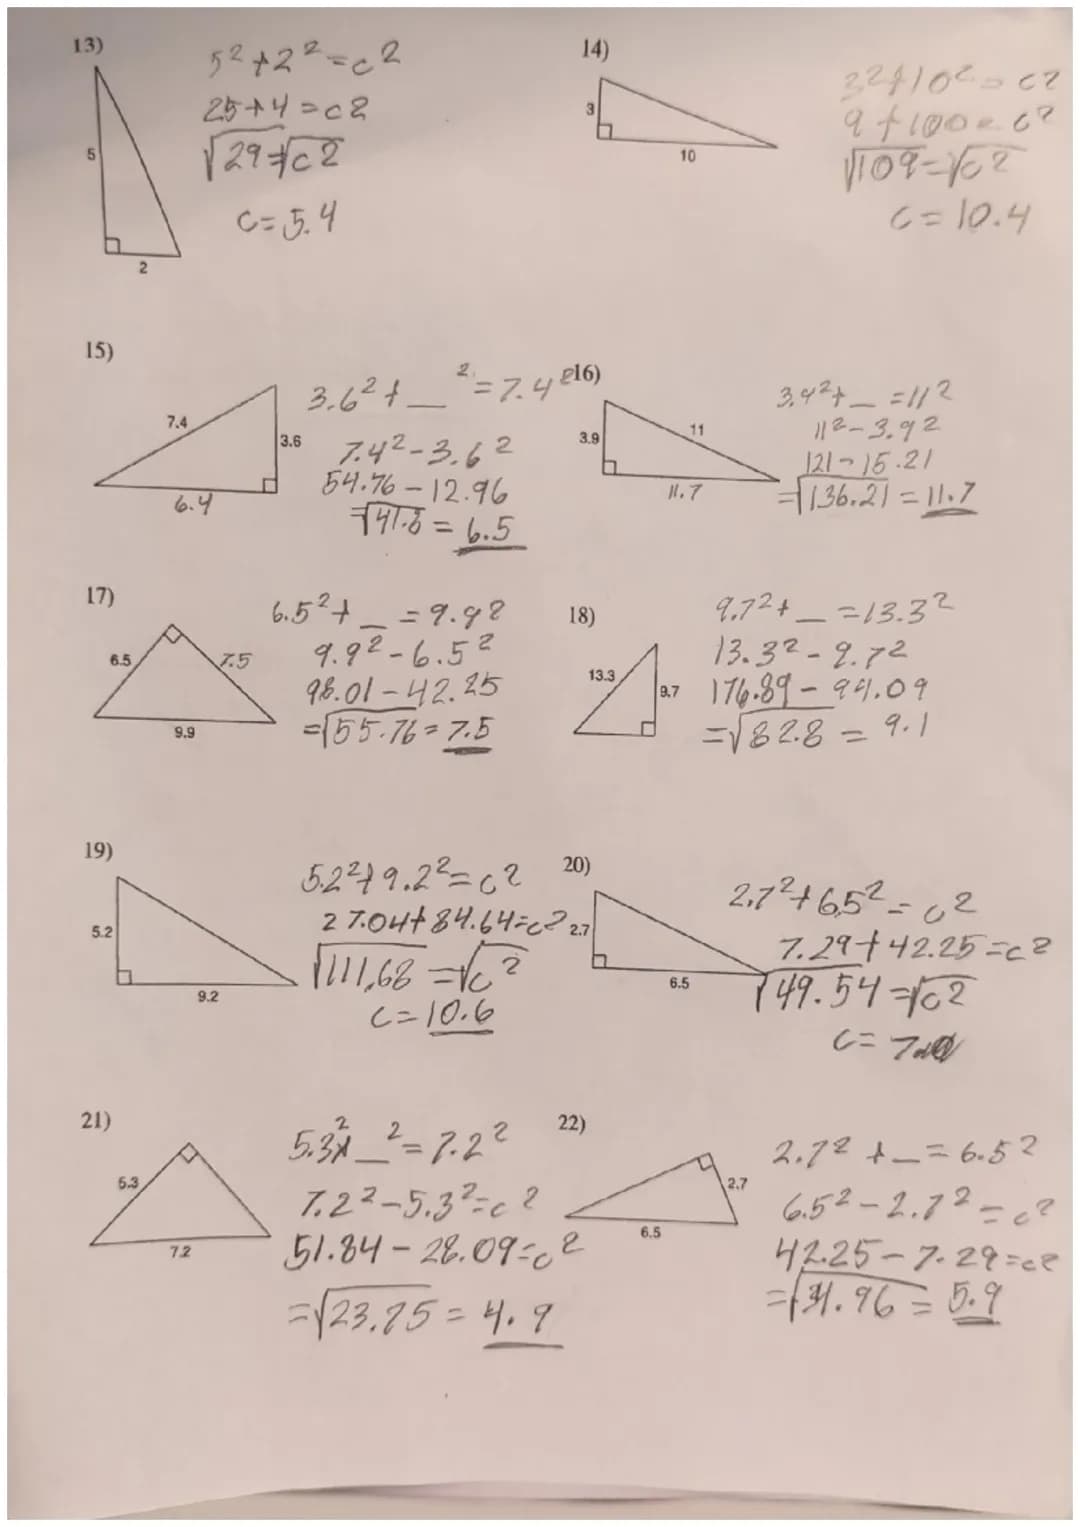 13)
5
2
5²+2²=c2
25+4=c2
√29=√c2
c=5.4
14)
3
10
3²+10²=c2
9+100=c²
√109=√c2
c=10.4
15)
7.4
3.6
6.4
3.6²+__²=7.4²
7.4²-3.6²
54.76-12.96
=√41.8=6.5
16)
3.9
11
11.7
3.9²+__=11²
11²-3.92
121-15.21
=√136.21=11.7
17)
6.5
7.5
9.9
6.5²+__=9.92
9.9²-6.5²
98.01-42.25
=√55.76=7.5
18)
13.3
9.7
9.7²+__=13.3²
13.3²-9.72
176.89-94.09
=√82.8=9.1
19)
5.2
9.2
5.2²+9.2²=c2
27.04+84.64=c2
√111.68=√c2
c=10.6
20)
2.7
6.5
2.7²+6.5²=c2
7.29+42.25=c2
√49.54=√c2
c=7.0
21)
5.3
7.2
5.3²+__²=7.2²
7.2²-5.3²=c2
51.84-28.09=c2
=√23.75=4.9
22)
2.7
6.5
2.7²+__=6.5²
6.5²-2.7²=c²
42.25-7.29=c2
=√34.96=5.9